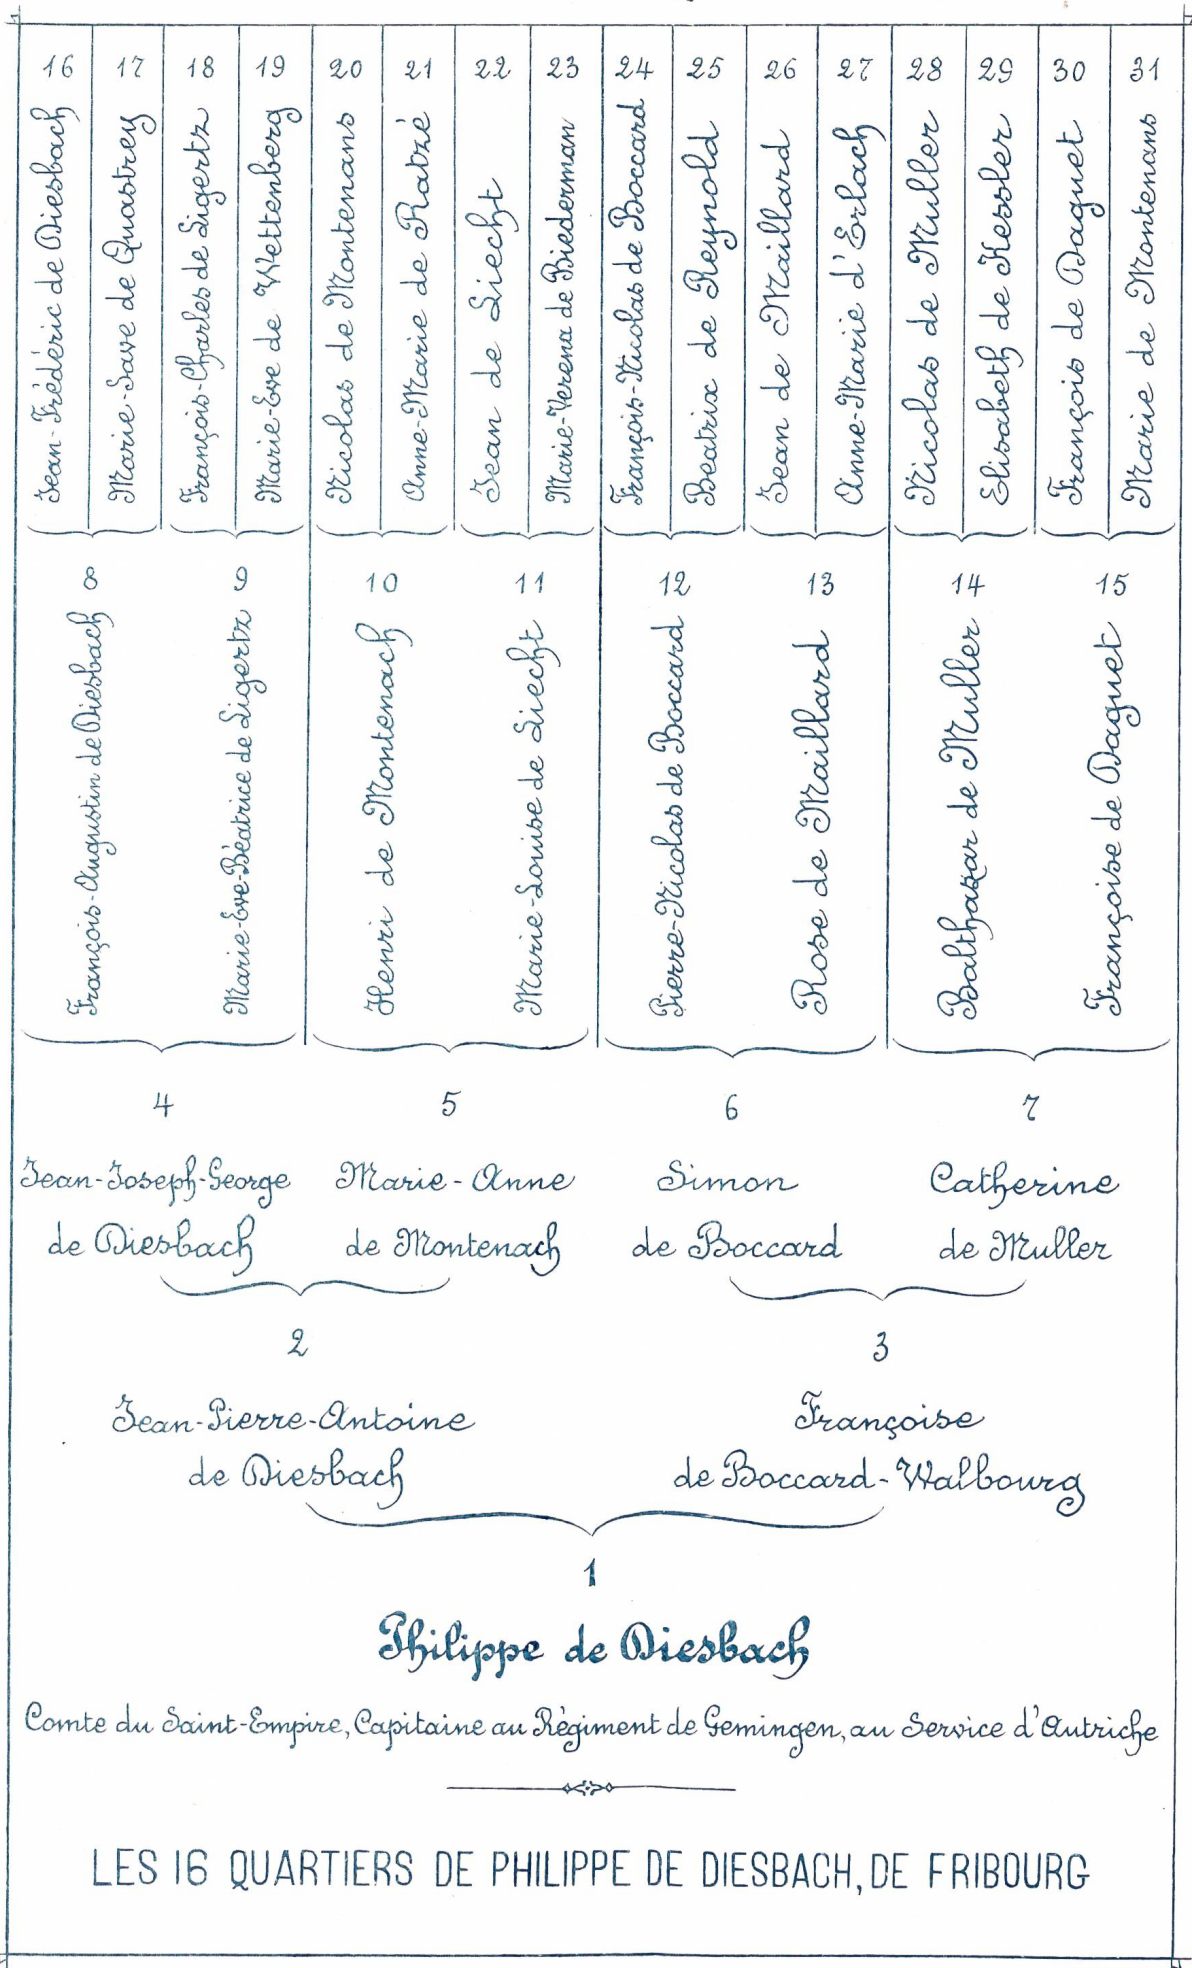 16 17 18 19 20 21 22 23 24 25 26 27 28 29 30 31
Jean-Frédéric de Diesbach
Marie-Save de Quastrey
François-Charles de Ligertz
Marie-Eve de Wettenberg
Nicolas de Montenans
Anne-Marie de Ratzé
Jean de Liecht
Marie-Verena de Biederman
François-Nicolas de Boccard
Beatrix de Reynold
Jean de Maillard
Anne-Marie d'Erlach
Nicolas de Muller
Elisabeth de Kessler
François de Daguet
Marie de Montenans
8 9 10 11 12 13 14 15
François-Augustin de Diesbach
Marie-Eve-Béatrice de Ligertz
Henri de Montenach
Marie-Louise de Liecht
Pierre-Nicolas de Boccard
Rose de Maillard
Balthazar de Muller
Françoise de Daguet
4 5 6 7
Jean-Joseph-George
de Diesbach
Marie-Anne
de Montenach
Simon
de Boccard
Catherine
de Muller
2 3
Jean-Pierre-Antoine
de Diesbach
Françoise
de Boccard-Walbourg
1
Philippe de Diesbach
Comte du Saint-Empire, Capitaine au Règiment de Gemingen, au Service d'Autriche
LES 16 QUARTIERS DE PHILIPPE DE DIESBACH, DE FRIBOURG